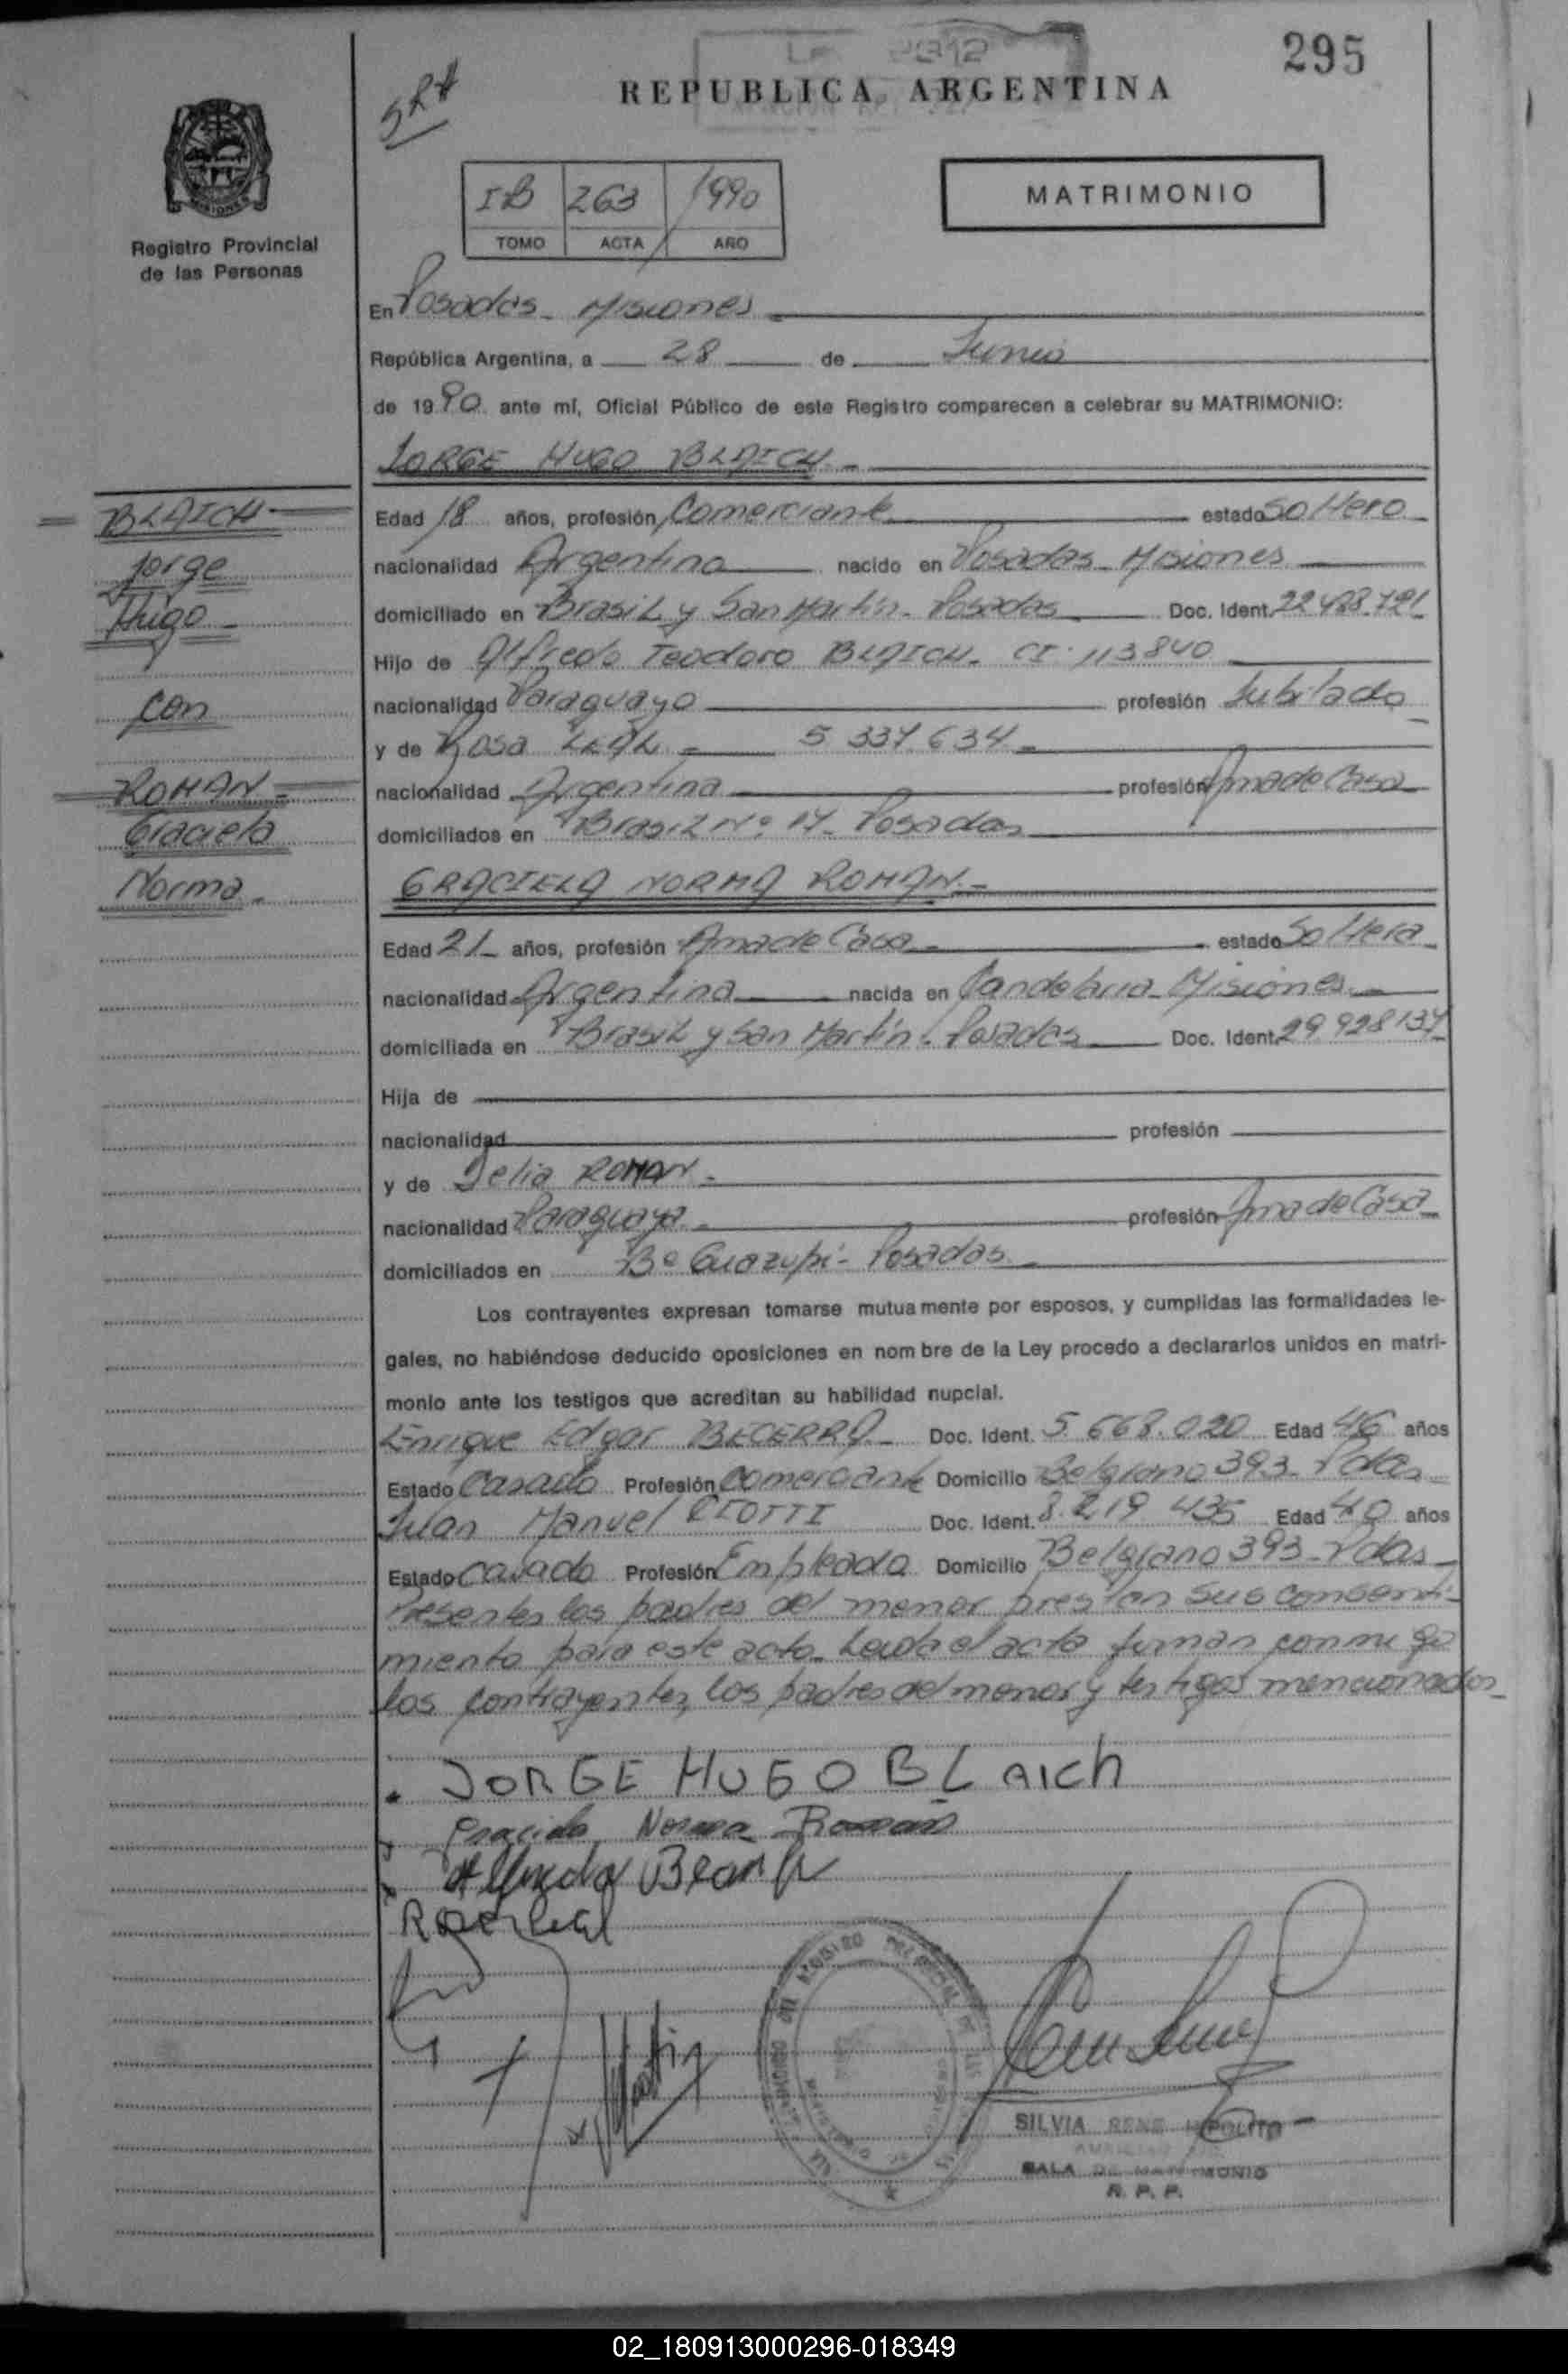 295
REPUBLICA ARGENTINA
MISIONES
Registro Provincial
de las Personas
IB 263 1990
TOMO ACTA AÑO
MATRIMONIO
En Posadas - Misiones
República Argentina, a 28 de Junio
de 1990 ante mí, Oficial Público de este Registro comparecen a celebrar su MATRIMONIO:
JORGE HUGO BLAICH.-
BLAICH
Jorge
Hugo.-
con
ROMAN.-
Graciela
Norma.-
Edad 18 años, profesión Comerciante estado Soltero
nacionalidad Argentina nacido en Posadas - Misiones
domiciliado en Brasil y San Martín - Posadas Doc. Ident.
Hijo de Alfredo Teodoro BLAICH. CI. 113840
nacionalidad Paraguayo profesión Jubilado
y de Rosa LEAL - 5 337 634 -
nacionalidad Argentina profesión Ama de Casa
domiciliados en Brasil Nº 17 - Posadas
GRACIELA NORMA ROMAN.-
Edad 21 años, profesión Ama de Casa - estado Soltera
nacionalidad Argentina nacida en Candelaria - Misiones
domiciliada en Brasil y San Martín - Posadas Doc. Ident.
Hija de
nacionalidad profesión
y de Delia ROMAN -
nacionalidad Paraguaya - profesión Ama de Casa
domiciliados en Bº Guazupi - Posadas
Los contrayentes expresan tomarse mutuamente por esposos, y cumplidas las formalidades le-
gales, no habiéndose deducido oposiciones en nombre de la Ley procedo a declararlos unidos en matri-
monio ante los testigos que acreditan su habilidad nupcial.
Enrique Edgar BECERRA Doc. Ident. 5.668.020 Edad 46 años
Estado Casado Profesión Comerciante Domicilio Belgrano 393 - Pdas
Juan Manuel CIOTTI Doc. Ident. 8.219 435 Edad 40 años
Estado Casado Profesión Empleado Domicilio Belgrano 393 - Pdas
Presentes los padres del menor prestan sus consenti-
miento para este acto. Leida el acta firman conmigo
los contrayentes, los padres del menor y testigos mencionados
JORGE HUGO BLAICH
Graciela Norma Roman
Rosa Leal
SILVIA RENE HIPOLITO
SALA DE MATRIMONIO
R. P. P.
02_180913000296-018349